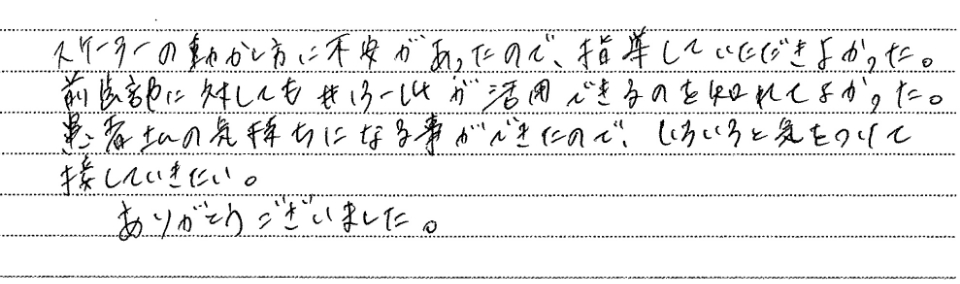 スケーラーの動かし方に不安があったので、指導していただきよかった。
前歯部に対しても#13-14が活用できるのを知れてよかった。
患者さんの気持ちになる事ができたので、いろいろと気をつけて
接していきたい。
ありがとうございました。